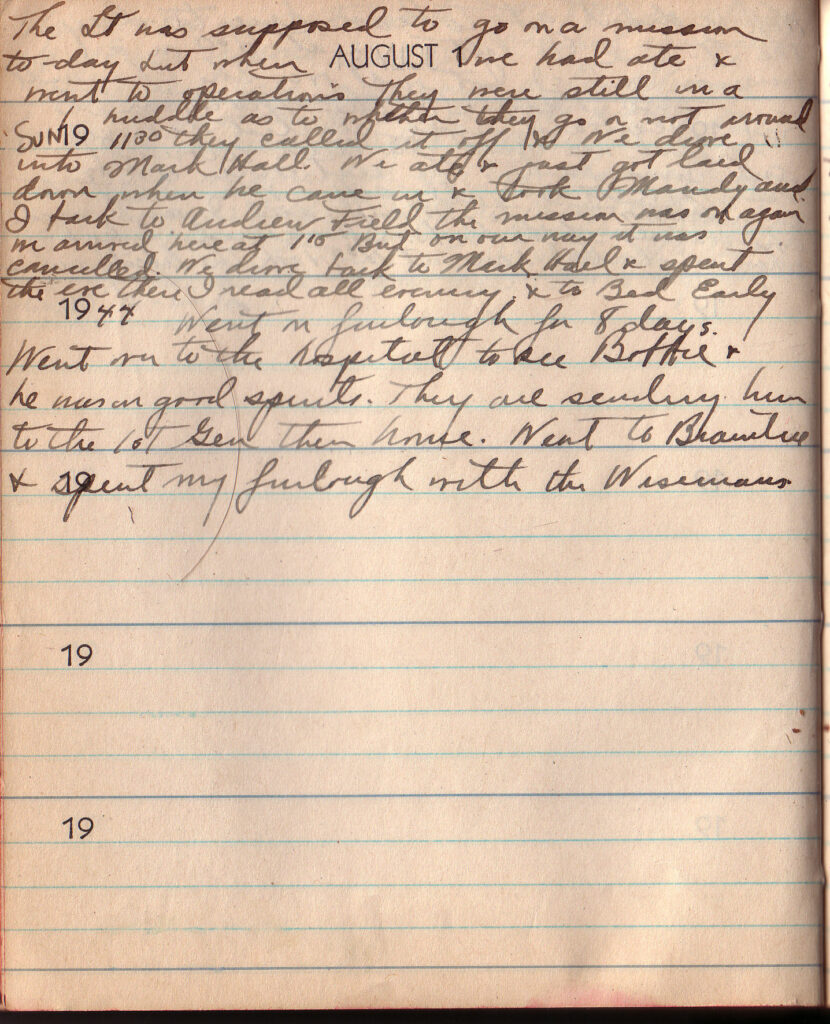 The Lt was supposed to go on a mission
to-day but when AUGUST 1 we had ate &
went to operations They were still in a
huddle as to whether they go or not around
SUN 19 1130 they called it off & We drove
into Mark Hall. We ate & just got laid
down when he came in & took Mandy and
I back to Andrew Field the mission was on again
we arrived here at 110 But on our way it was
cancelled. We drove back to Mark Hall & spent
the eve there I read all evening & to Bed Early
1944 Went on furlough for 8 days.
Went over to the hospital to see Bobbie &
he was in good spirits. They are sending him
to the 1st Gen then home. Went to Braintree
19
& spent my furlough with the Wisemans.
19
19